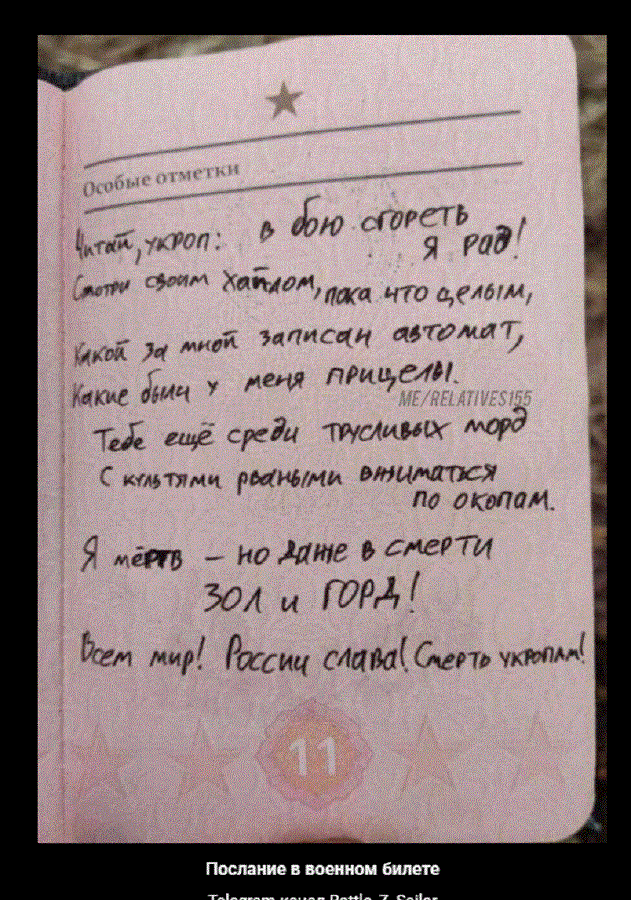 Особые отметки
Читай, укроп: в бою сгореть
я рад!
Смотри своим хайлом, пока что целым,
Какой за мной записан автомат,
Какие были у меня прицелы.
ME/RELATIVES155
Тебе ещё среди трусливых морд
С культями рваными вжиматься
по окопам.
Я мёртв – но даже в смерти
ЗОЛ и ГОРД!
Всем мир! России слава! Смерть укропам!
11
Послание в военном билете
Telegram-канал Battle_Z_Sailor